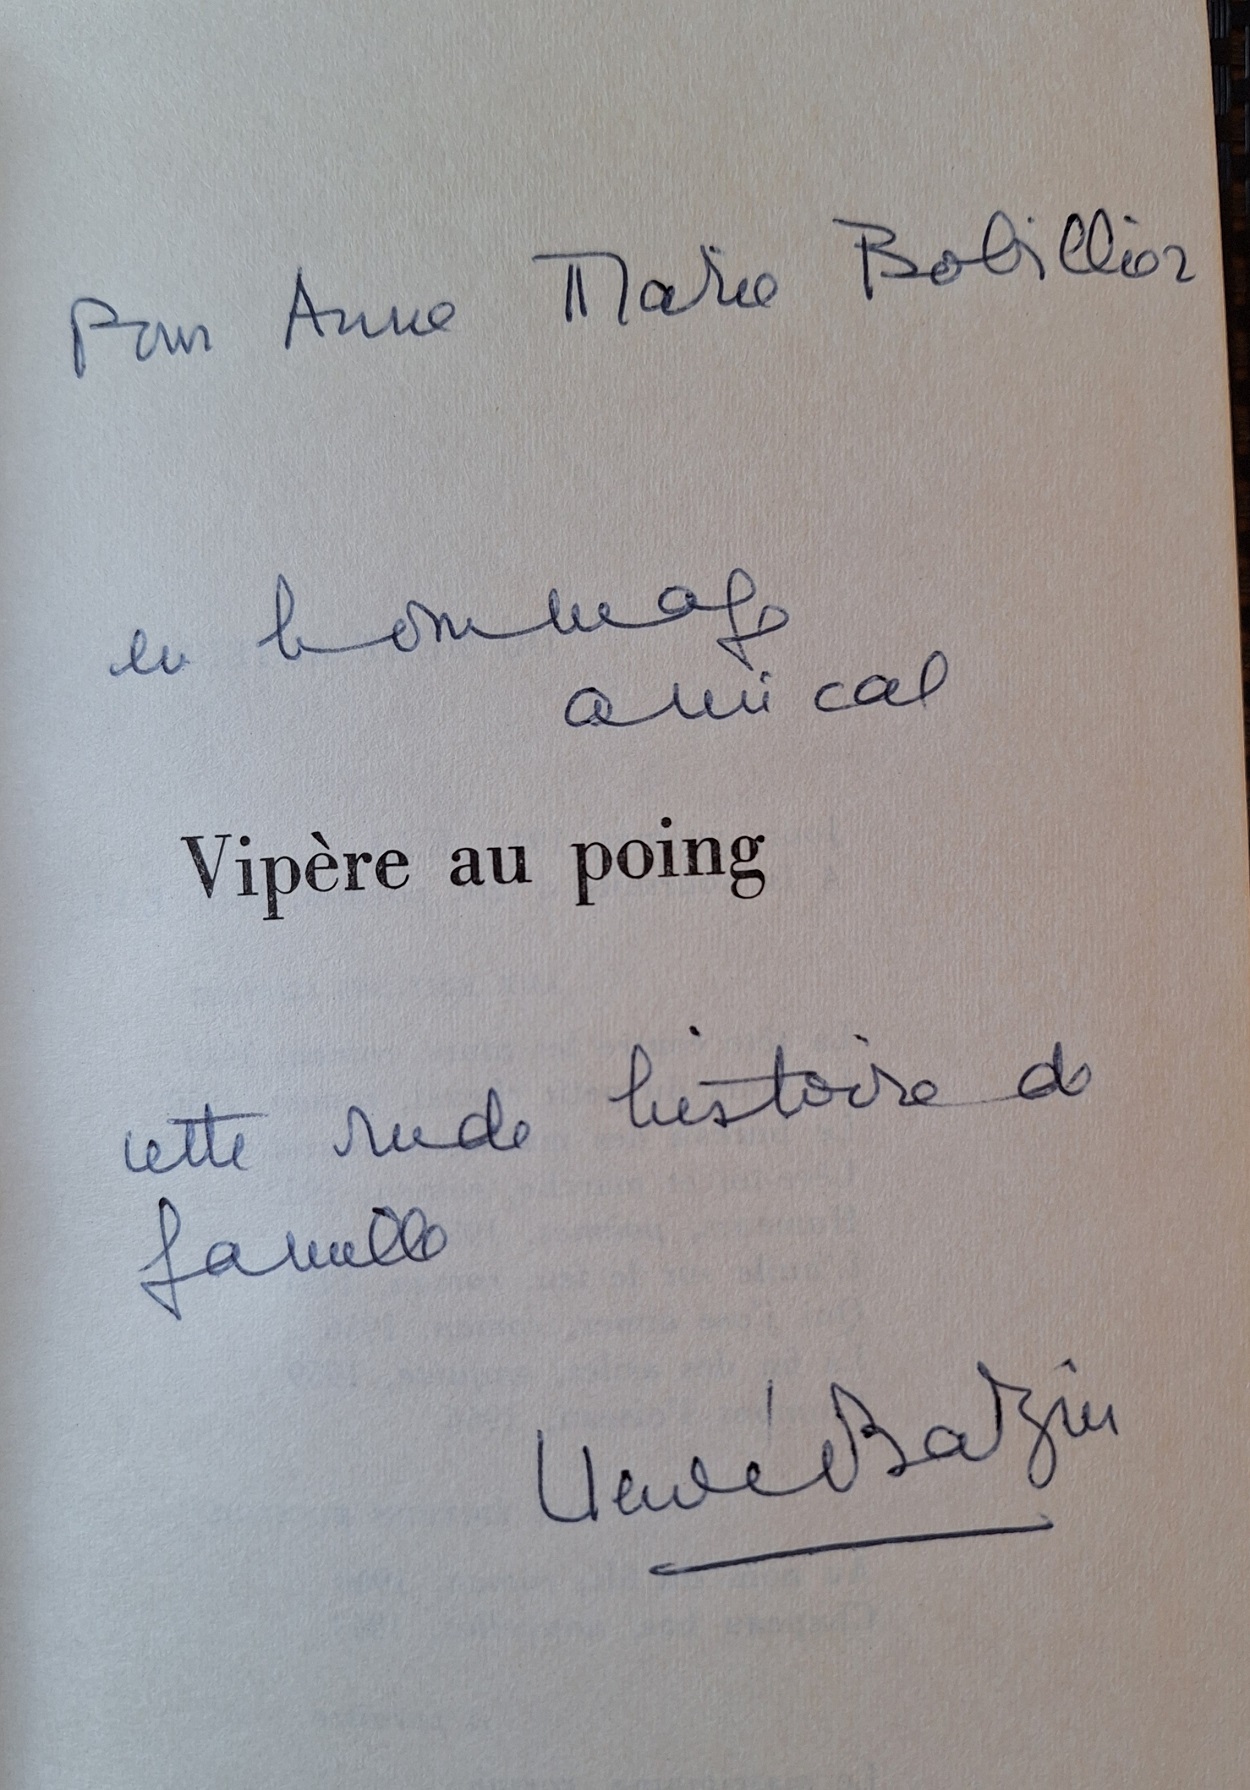 Pour Anne Marie Bobillier
en hommage
amical
Vipère au poing
cette rude histoire de
famille
Hervé Bazin